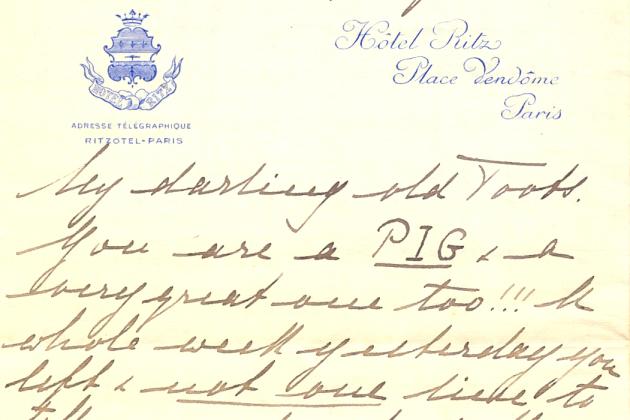 HOTEL RITZ
ADRESSE TÉLÉGRAPHIQUE
RITZOTEL-PARIS
Hôtel Ritz
Place Vendôme
Paris
My darling old Toots.
You are a PIG & a
very great one too!!! A
whole week yesterday you
left & not one line to